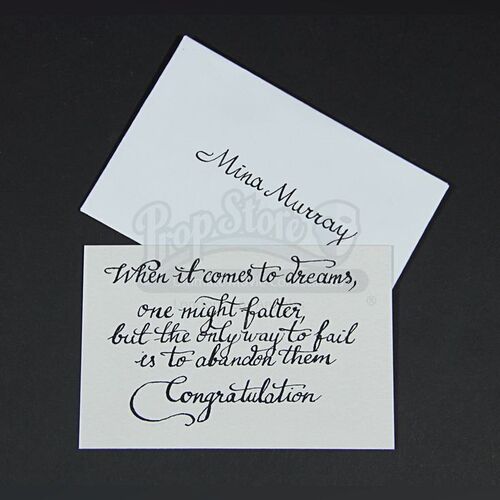 Mina Murray
PropStore
When it comes to dreams,
one might falter,
but the only way to fail
is to abandon them
Congratulation